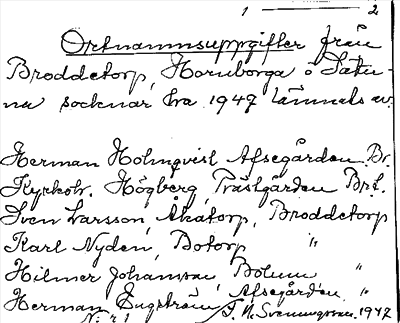 1 — 2
Ortnamnsuppgifter från
Broddetorp, Hornborga o Sätu-
na socknar bra 1947 lämnats av.
Herman Holmqvist Afsegården Br.
Kyrkov. Högberg, Prästgården Brt.
Sven Larsson, Åkatorp, Broddetorp
Karl Nyden, Botorp "
Hilmer Johansson, Bolum "
Herman Engström, Afsegården "
1947